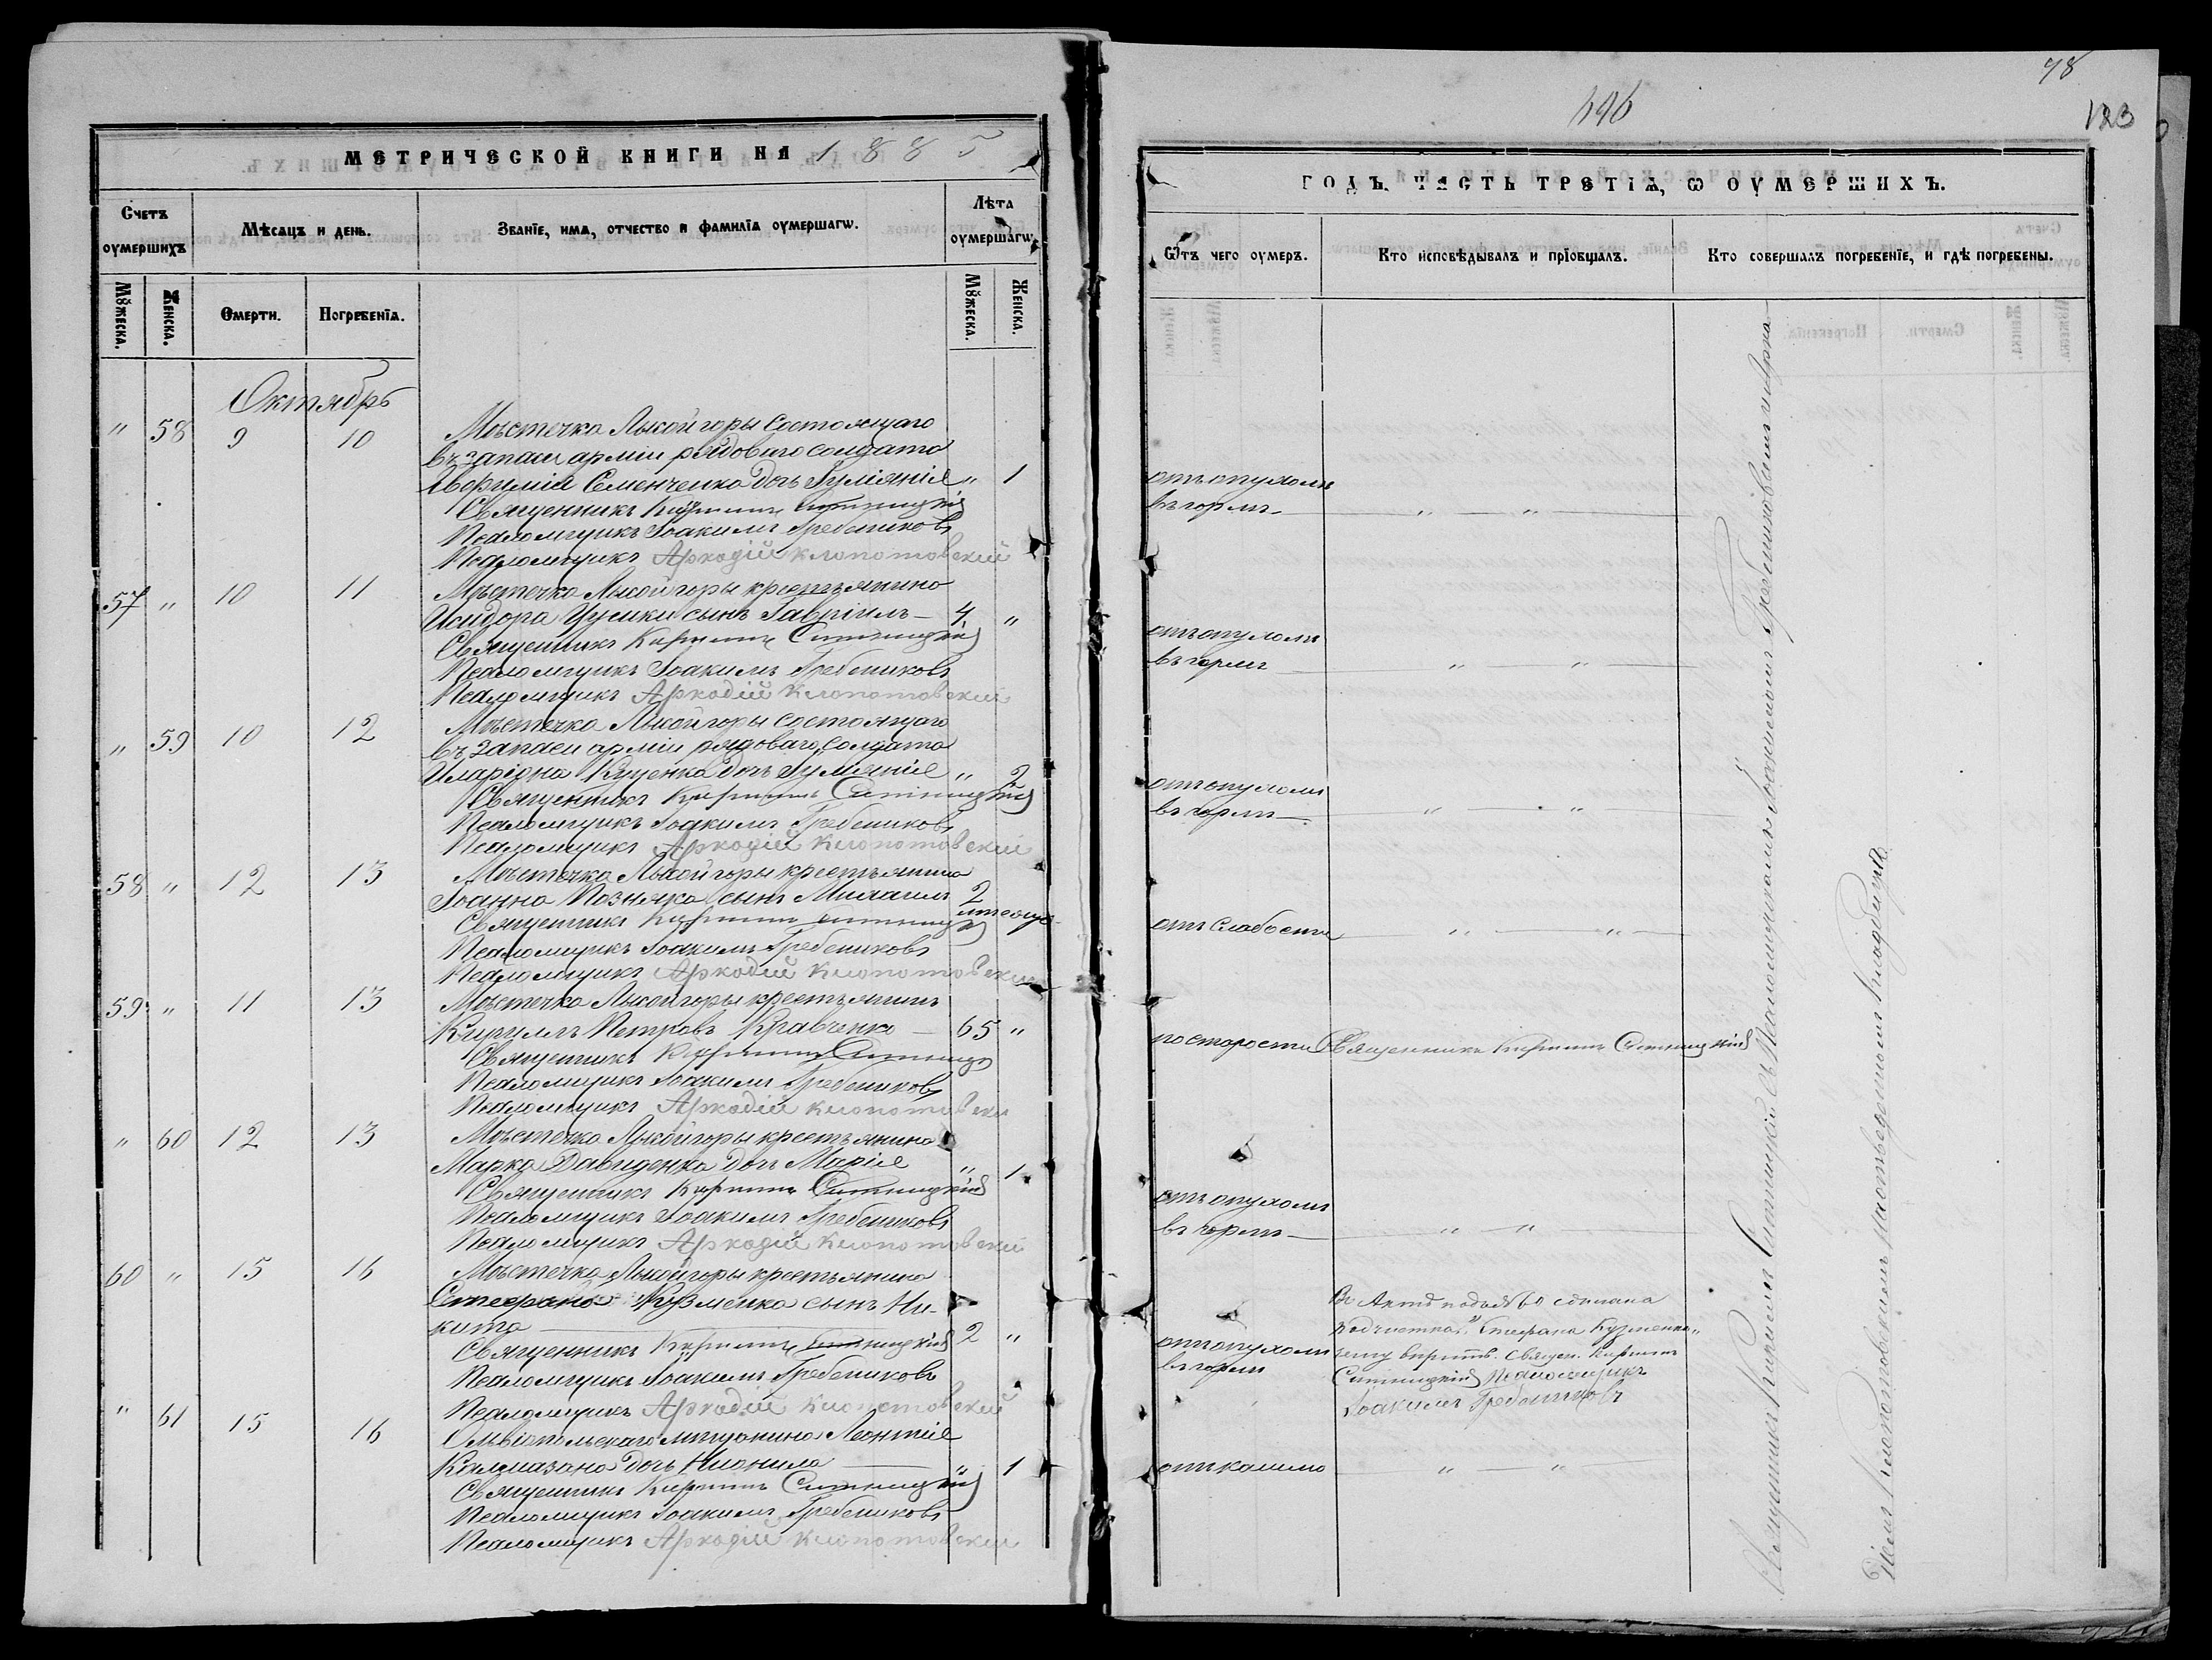 МЕТРИЧЕСКОЙ КНИГИ НА 1885
Счетъ оумершихъ
Мѣсяцъ и день.
Званїе, имя, отчество и фамилїа оумершагѡ.
Лѣта оумершагѡ.
Мꙋжеска.
Женска.
Смерти.
Погребенїа.
Мꙋжеска.
Женска.
Октябрь
" 58 9 10 Мѣстечка Лысой горы состоящаго
въ запасѣ арміи рядоваго солдата
Семенченка дочь Гуліянія " 1
Священникъ Кириллъ Ситницкій
Псаломщикъ Іоакимъ Гребениковъ
Псаломщикъ Аркадій Клопотовскій
57 " 10 11 Мѣстечка Лысой горы крестьянина
Исидора сынъ Гавріилъ 4 "
Священникъ Кириллъ Ситницкій
Псаломщикъ Іоакимъ Гребениковъ
Псаломщикъ Аркадій Клопотовскій
" 59 10 12 Мѣстечка Лысой горы состоящаго
въ запасѣ арміи рядоваго солдата
Иларіона Куценка дочь Гуліянія " 2
Священникъ Кириллъ Ситницкій
Псаломщикъ Іоакимъ Гребениковъ
Псаломщикъ Аркадій Клопотовскій
58 " 12 13 Мѣстечка Лысой горы крестьянина
Іоанна Позняка сынъ Михаилъ 2
Священникъ Кириллъ Ситницкій
Псаломщикъ Іоакимъ Гребениковъ
Псаломщикъ Аркадій Клопотовскій
59 " 11 13 Мѣстечка Лысой горы крестьянинъ
Кириллъ Петровъ Кравченко 65 "
Священникъ Кириллъ Ситницкій
Псаломщикъ Іоакимъ Гребениковъ
Псаломщикъ Аркадій Клопотовскій
" 60 12 13 Мѣстечка Лысой горы крестьянина
Марка Давиденка дочь Марія " 1
Священникъ Кириллъ Ситницкій
Псаломщикъ Іоакимъ Гребениковъ
Псаломщикъ Аркадій Клопотовскій
60 " 15 16 Мѣстечка Лысой горы крестьянина
Стефана Кузменка сынъ Ни-
кита 2 "
Священникъ Кириллъ Ситницкій
Псаломщикъ Іоакимъ Гребениковъ
Псаломщикъ Аркадій Клопотовскій
" 61 15 16 Ольвіопольскаго мѣщанина Леонтія
Калмазана дочь " 1
Священникъ Кириллъ Ситницкій
Псаломщикъ Іоакимъ Гребениковъ
Псаломщикъ Аркадій Клопотовскій
78
496
123
ГОДЪ, ЧАСТЬ ТРЕТІѦ, Ѡ ОУМЕРШИХЪ.
Ѿтъ чего оумеръ.
Кто исповѣдывалъ и прїобщалъ.
Кто совершалъ погребенїе, и гдѣ погребены.
отъ опухоли
въ горлѣ " "
отъ опухоли
въ горлѣ " "
отъ опухоли
въ горлѣ " "
отъ слабости " "
по старости Священникъ Кириллъ Ситницкій
отъ опухоли
въ горлѣ " "
Въ Актѣ подъ № 60 сдѣлана
подчистка: "Стефана Кузменка"
чему вѣрить. Священ. Кириллъ
Ситницкій Псаломщикъ
Іоакимъ Гребениковъ
отъ опухоли
въ горлѣ
отъ кашлю " "
Священникъ Кириллъ Ситницкій съ Псаломщикомъ Іоакимомъ Гребениковымъ и Арка-
діемъ Клопотовскимъ на отведенномъ кладбищѣ